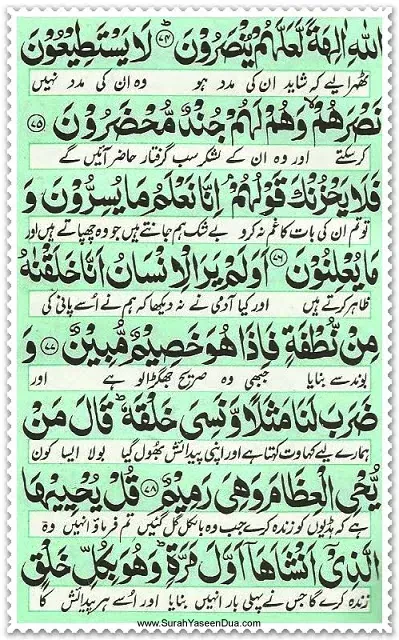 اللّٰهِ اٰلِهَةً لَّعَلَّهُمْ يُنْصَرُوْنَ ﴿۷۴﴾ لَا يَسْتَطِيْعُوْنَ
ٹھہرالیے کہ شاید ان کی مدد ہو وہ ان کی مدد نہیں
نَصْرَهُمْ وَهُمْ لَهُمْ جُنْدٌ مُّحْضَرُوْنَ ﴿۷۵﴾
کرسکتے اور وہ ان کے لشکر سب گرفتار حاضر آئیں گے
فَلَا يَحْزُنْكَ قَوْلُهُمْ اِنَّا نَعْلَمُ مَا يُسِرُّوْنَ وَ
تو تم ان کی بات کا غم نہ کرو بے شک ہم جانتے ہیں جو وہ چھپاتے ہیں اور
مَا يُعْلِنُوْنَ ﴿۷۶﴾ اَوَلَمْ يَرَ الْاِنْسَانُ اَنَّا خَلَقْنٰهُ
ظاہر کرتے ہیں اور کیا آدمی نے نہ دیکھا کہ ہم نے اُسے پانی کی
مِنْ نُّطْفَةٍ فَاِذَا هُوَ خَصِيْمٌ مُّبِيْنٌ ﴿۷۷﴾ وَ
بوند سے بنایا جبھی وہ صریح جھگڑالو ہے اور
ضَرَبَ لَنَا مَثَلًا وَّنَسِیَ خَلْقَهٗ ؕ قَالَ مَنْ
ہمارے لیے کہاوت کہتا ہے اور اپنی پیدائش بھول گیا بولا ایسا کون
يُّحْیِ الْعِظَامَ وَهِیَ رَمِيْمٌ ﴿۷۸﴾ قُلْ يُحْيِيْهَا
ہے کہ ہڈیوں کو زندہ کرے جب وہ بالکل گل گئیں تم فرماؤ انہیں وہ
الَّذِیْۤ اَنْشَاَهَاۤ اَوَّلَ مَرَّةٍ ؕ وَهُوَ بِكُلِّ خَلْقٍ
زندہ کرے گا جس نے پہلی بار انہیں بنایا اور اُسے ہر پیدائش کا
www.SurahYaseenDua.com